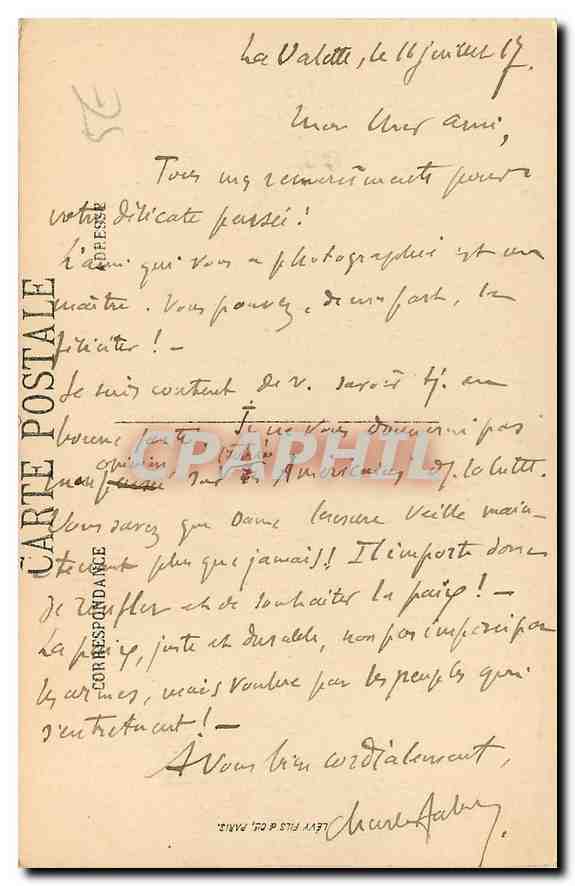 La Valette, le 16 juillet 17.
Mon cher ami,
Tous mes remerciments pour
votre délicate pensée!
L'ami qui vous a photographié est un
maître. Vous pouvez, de ma part, le
féliciter! –
Je suis content de v. savoir tj. en
bonne santé. Je ne vous donnerai pas
mon opinion sur les Américains ds. la lutte.
Vous savez que Dame Censure veille main-
tenant plus que jamais! Il importe donc
de souhaiter la paix! –
La paix, juste et durable, non pas imposée par
les armes, mais voulue par les peuples qui
s'entretuent! –
A Vous bien cordialement,
Charles
CARTE POSTALE
CORRESPONDANCE
ADRESSE
LÉVY FILS & Cie, PARIS.
CPAPHIL
.com